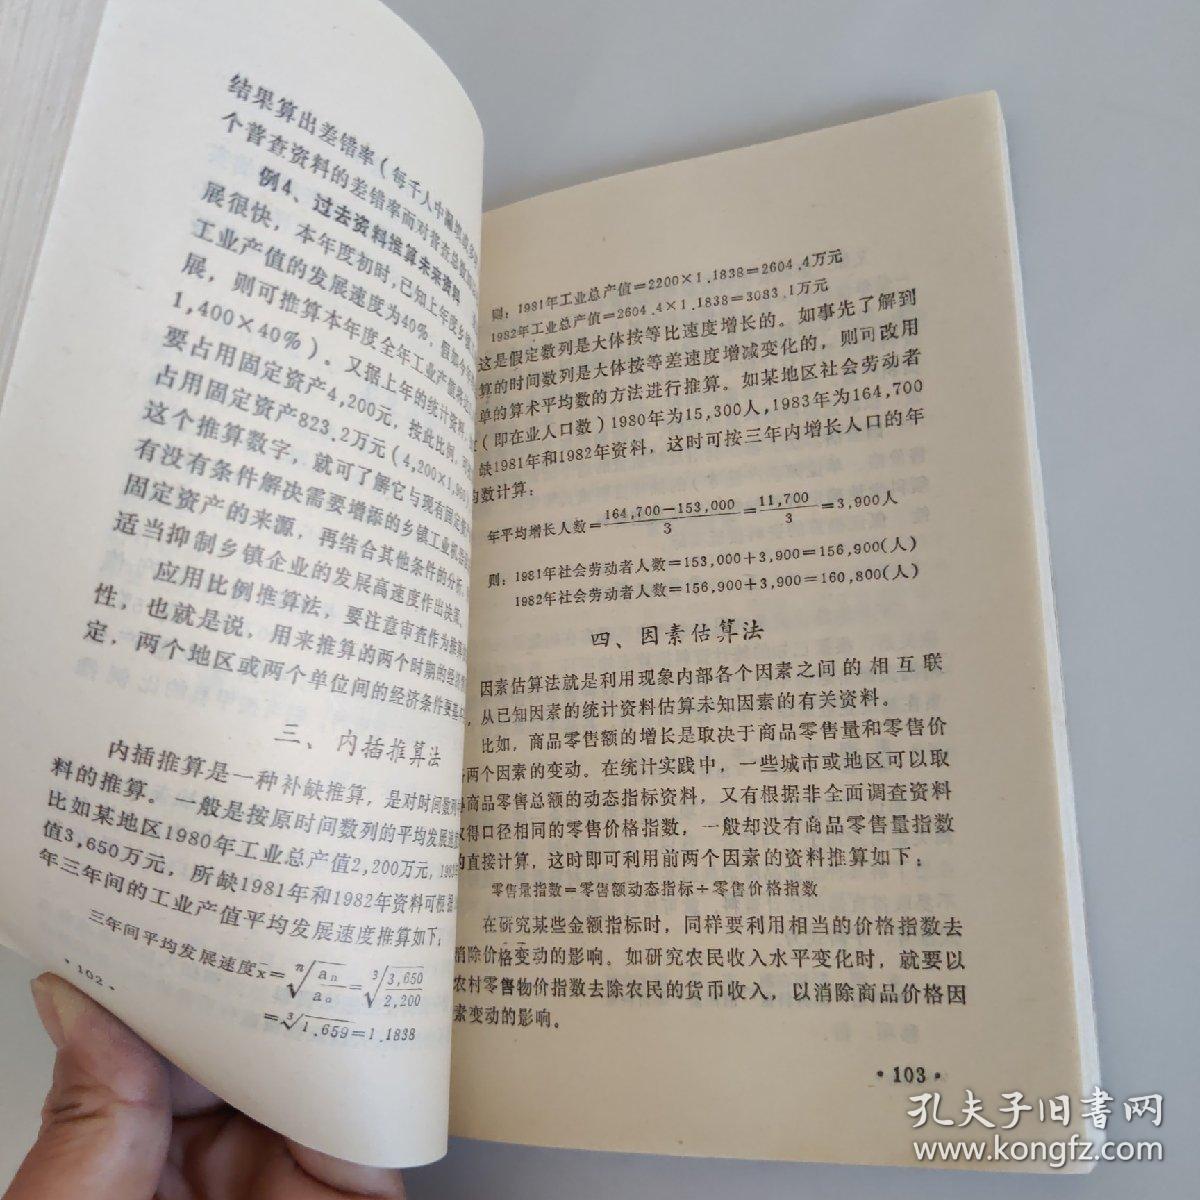 结果算出差错率(每千人中漏
个普查资料的差错率而对普查总
例4、过去资料推算未来资料
展很快，本年度初时，已知上年度乡
工业产值的发展速度为40%，假如今
展，则可推算本年度全年工业产值将
1,400×40%)。又据上年的统计资料，
要占用固定资产4,200元，按此比例，
占用固定资产823.2万元(4,200×1,960)
这个推算数字，就可了解它与现有固定资产
有没有条件解决需要增添的乡镇工业机器
固定资产的来源，再结合其他条件的分析，
适当抑制乡镇企业的发展高速度作出决策。
应用比例推算法，要注意审查作为推算
性，也就是说，用来推算的两个时期的经济
定，两个地区或两个单位间的经济条件要基本
三、内插推算法
内插推算是一种补缺推算，是对时间数列中
料的推算。一般是按原时间数列的平均发展速度
比如某地区1980年工业总产值2,200万元，1983
值3,650万元，所缺1981年和1982年资料可根据
年三年间的工业产值平均发展速度推算如下：
三年间平均发展速度x̄=ⁿ√(aₙ/a₀)=³√(3,650/2,200)
=³√1.659=1.1838
·102·
则：1981年工业总产值=2200×1.1838=2604.4万元
1982年工业总产值=2604.4×1.1838=3083.1万元
这是假定数列是大体按等比速度增长的。如事先了解到
算的时间数列是大体按等差速度增减变化的，则可改用
单的算术平均数的方法进行推算。如某地区社会劳动者
(即在业人口数)1980年为15,300人，1983年为164,700
缺1981年和1982年资料，这时可按三年内增长人口的年
均数计算：
年平均增长人数=(164,700−153,000)/3=11,700/3=3,900人
则：1981年社会劳动者人数=153,000+3,900=156,900(人)
1982年社会劳动者人数=156,900+3,900=160,800(人)
四、因素估算法
因素估算法就是利用现象内部各个因素之间的相互联
，从已知因素的统计资料估算未知因素的有关资料。
比如，商品零售额的增长是取决于商品零售量和零售价
两个因素的变动。在统计实践中，一些城市或地区可以取
商品零售总额的动态指标资料，又有根据非全面调查资料
又得口径相同的零售价格指数，一般却没有商品零售量指数
的直接计算，这时即可利用前两个因素的资料推算如下：
零售量指数=零售额动态指标÷零售价格指数
在研究某些金额指标时，同样要利用相当的价格指数去
消除价格变动的影响。如研究农民收入水平变化时，就要以
农村零售物价指数去除农民的货币收入，以消除商品价格因
素变动的影响。
·103·
孔夫子旧书网
www.kongfz.com